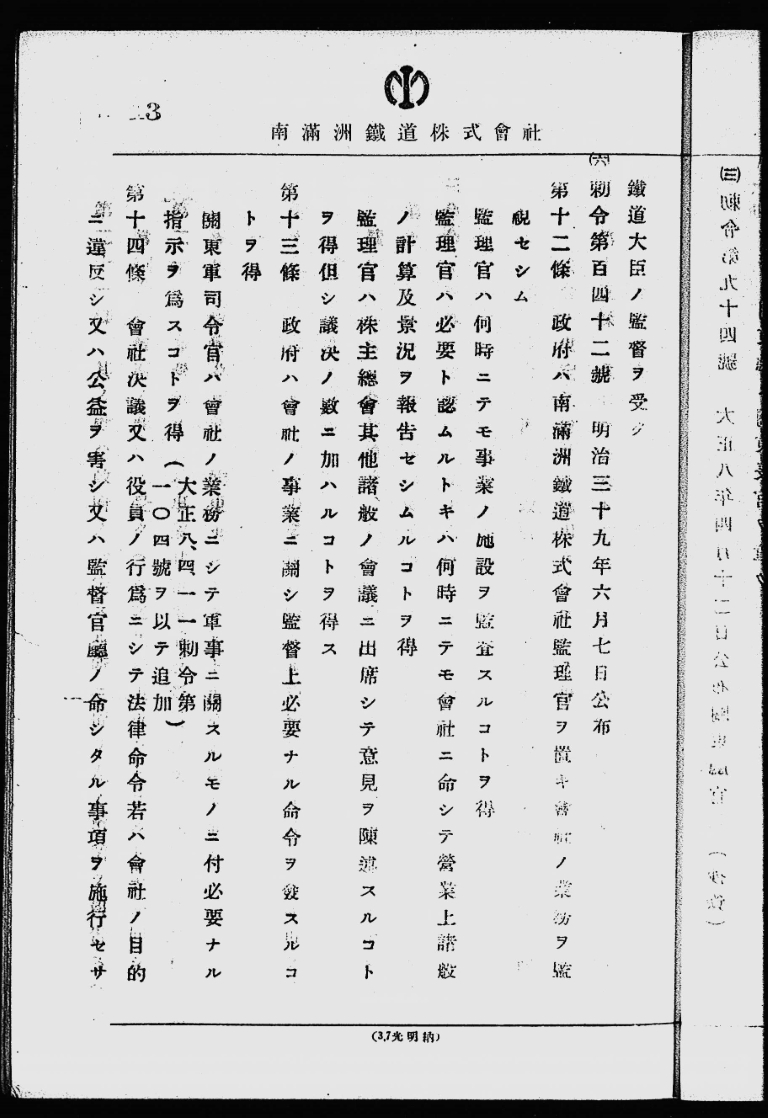 3
南滿洲鐵道株式會社
鐵道大臣ノ監督ヲ受ク
(六)勅令第百四十二號 明治三十九年六月七日公布
第十二條 政府ハ南滿洲鐵道株式會社監理官ヲ置キ會社ノ業務ヲ監
視セシム
監理官ハ何時ニテモ事業ノ施設ヲ監査スルコトヲ得
監理官ハ必要ト認ムルトキハ何時ニテモ會社ニ命シテ營業上諸般
ノ計算及景況ヲ報告セシムルコトヲ得
監理官ハ株主總會其他諸般ノ會議ニ出席シテ意見ヲ陳述スルコト
ヲ得但シ議決ノ數ニ加ハルコトヲ得ス
第十三條 政府ハ會社ノ事業ニ關シ監督上必要ナル命令ヲ發スルコ
トヲ得
關東軍司令官ハ會社ノ業務ニシテ軍事ニ關スルモノニ付必要ナル
指示ヲ爲スコトヲ得(大正八、四、一一勅令第
一〇四號ヲ以テ追加)
第十四條 會社決議又ハ役員ノ行爲ニシテ法律命令若ハ會社ノ目的
ニ違反シ又ハ公益ヲ害シ又ハ監督官廳ノ命シタル事項ヲ施行セサ
(3.7光明納)
(三)勅令第九十四號 大正八年四月十二日公布關東